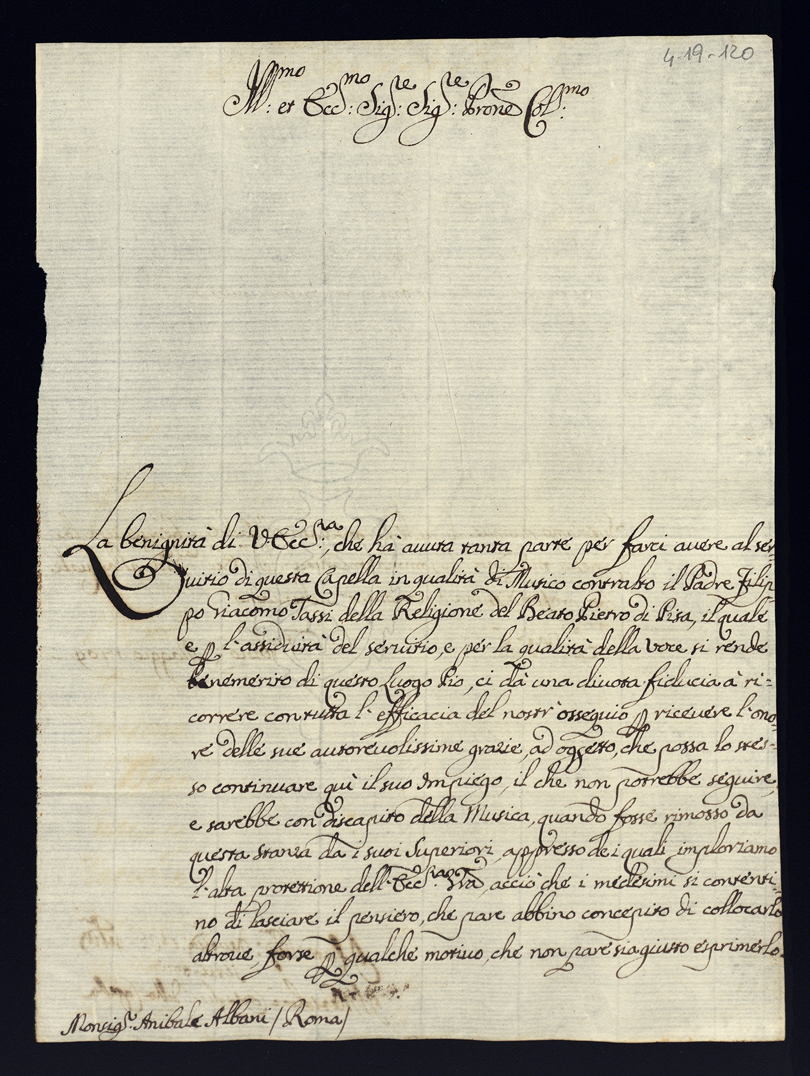 4-19-120
Ill:mo et Ecc:mo Sig:re Sig:re Prone Coll:mo
La benignità di V. Ecc:za, che hà auuta tanta parte per farci auere al ser-
uitio di questa Capella in qualità di Musico contralto il Padre Filip
po Giacomo Tassi della Religione del Beato Pietro di Pisa, il quale
e p l'assiduità del seruitio, e per la qualità della voce si rende
benemerito di questo Luogo Pio, ci dà una diuota fiducia à ri=
correre con tutta l'efficacia del nostr'ossequio p riceuere l'ono=
re delle sue autoreuolissime grazie, ad oggetto, che possa lo stes=
so continuare quì il suo Impiego, il che non potrebbe seguire,
e sarebbe con discapito della Musica, quando fosse rimosso da
questa stanza da i suoi Superiori, appresso de i quali imploriamo
l'alta protettione dell'Ecc:za Vra, acciò che i medesimi si contenti=
no di lasciare il pensiero, che pare abbino concepito di collocarlo
altroue forse p qualche motiuo, che non pare sia giusto esprimerlo.
Monsig:r Anibale Albani / Roma /